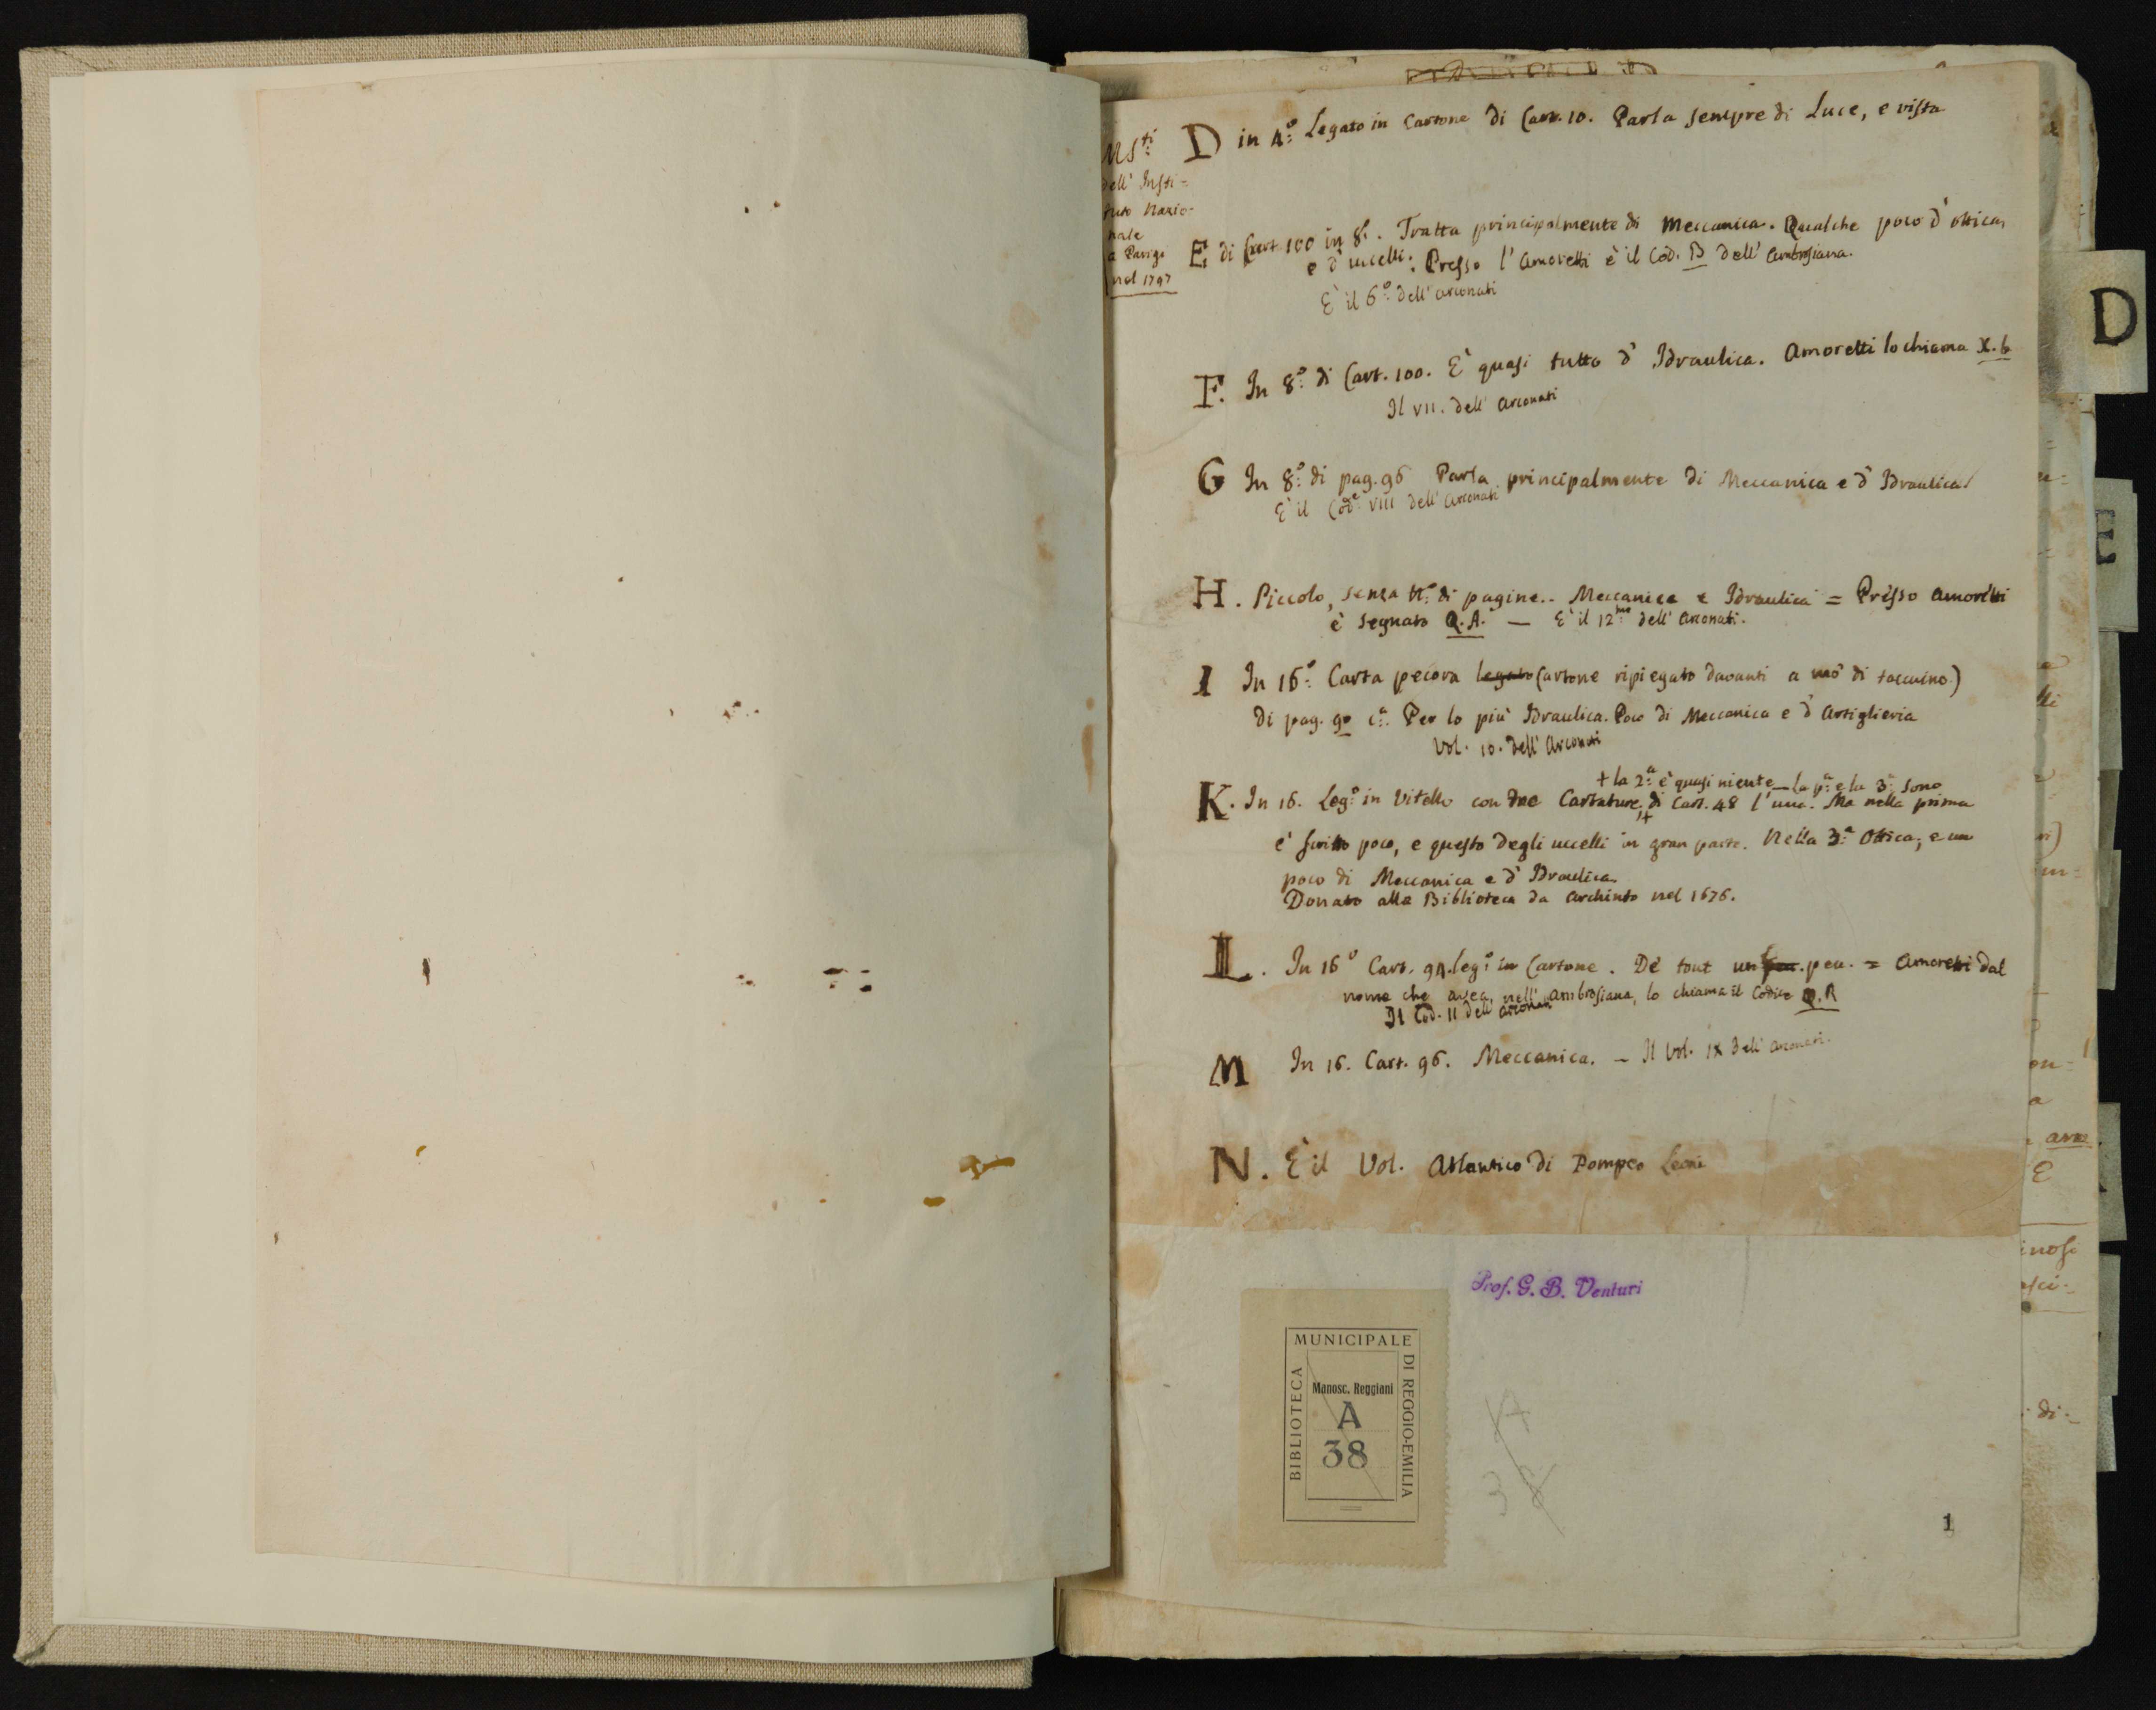 MS.ti
dell' Insti=
tuto Nazio-
nale
a Parigi
nel 1797
D in 4.o Legato in Cartone di Cart. 10. Parla sempre di Luce, e vista
E di Cart. 100 in 8.o. Tratta principalmente di Meccanica. Qualche poco d'ottica,
e d'uccelli. Presso l'Amoretti è il Cod. B dell' Ambrosiana.
È il 6.o dell' Arconati
F. In 8.o di Cart. 100. È quasi tutto d' Idraulica. Amoretti lo chiama
Il VII. dell' Arconati
G In 8.o di pag. 96 Parla principalmente di Meccanica e d' Idraulica
È il Cod.e VIII dell' Arconati
H. Piccolo, senza N.o di pagine.. Meccanica e Idraulica = Presso Amoretti
è segnato Q.A. — È il 12.mo dell' Arconati.
I In 16.o Carta pecora legato (Cartone ripiegato davanti a mo' di taccuino)
di pag. 90 c.a. Per lo più Idraulica. Poco di Meccanica e d' Artiglieria
Vol. 10. dell' Arconati
+ la 2.a è quasi niente – la p.a e la 3.a sono
K. In 16. Leg.o in Vitello con tre Cartature, + di Cart. 48 l'una. Ma nella prima
è scritto poco, e questo degli uccelli in gran parte. Nella 3.a Ottica, e un
poco di Meccanica e d' Idraulica
Donato alla Biblioteca da Archinto nel 1676.
L. In 16.o Cart. 94. leg.o in Cartone. De tout un peu. = Amoretti dal
nome che avea nell' Ambrosiana, lo chiama il Codice Q.R
Il Cod. II dell' Arconati
M In 16. Cart. 96. Meccanica. – Il Vol. IX dell' Arconati.
N. È il Vol. Atlantico di Pompeo Leoni
Prof. G. B. Venturi
BIBLIOTECA
MUNICIPALE
DI REGGIO-EMILIA
Manosc. Reggiani
A
38
1
D
E